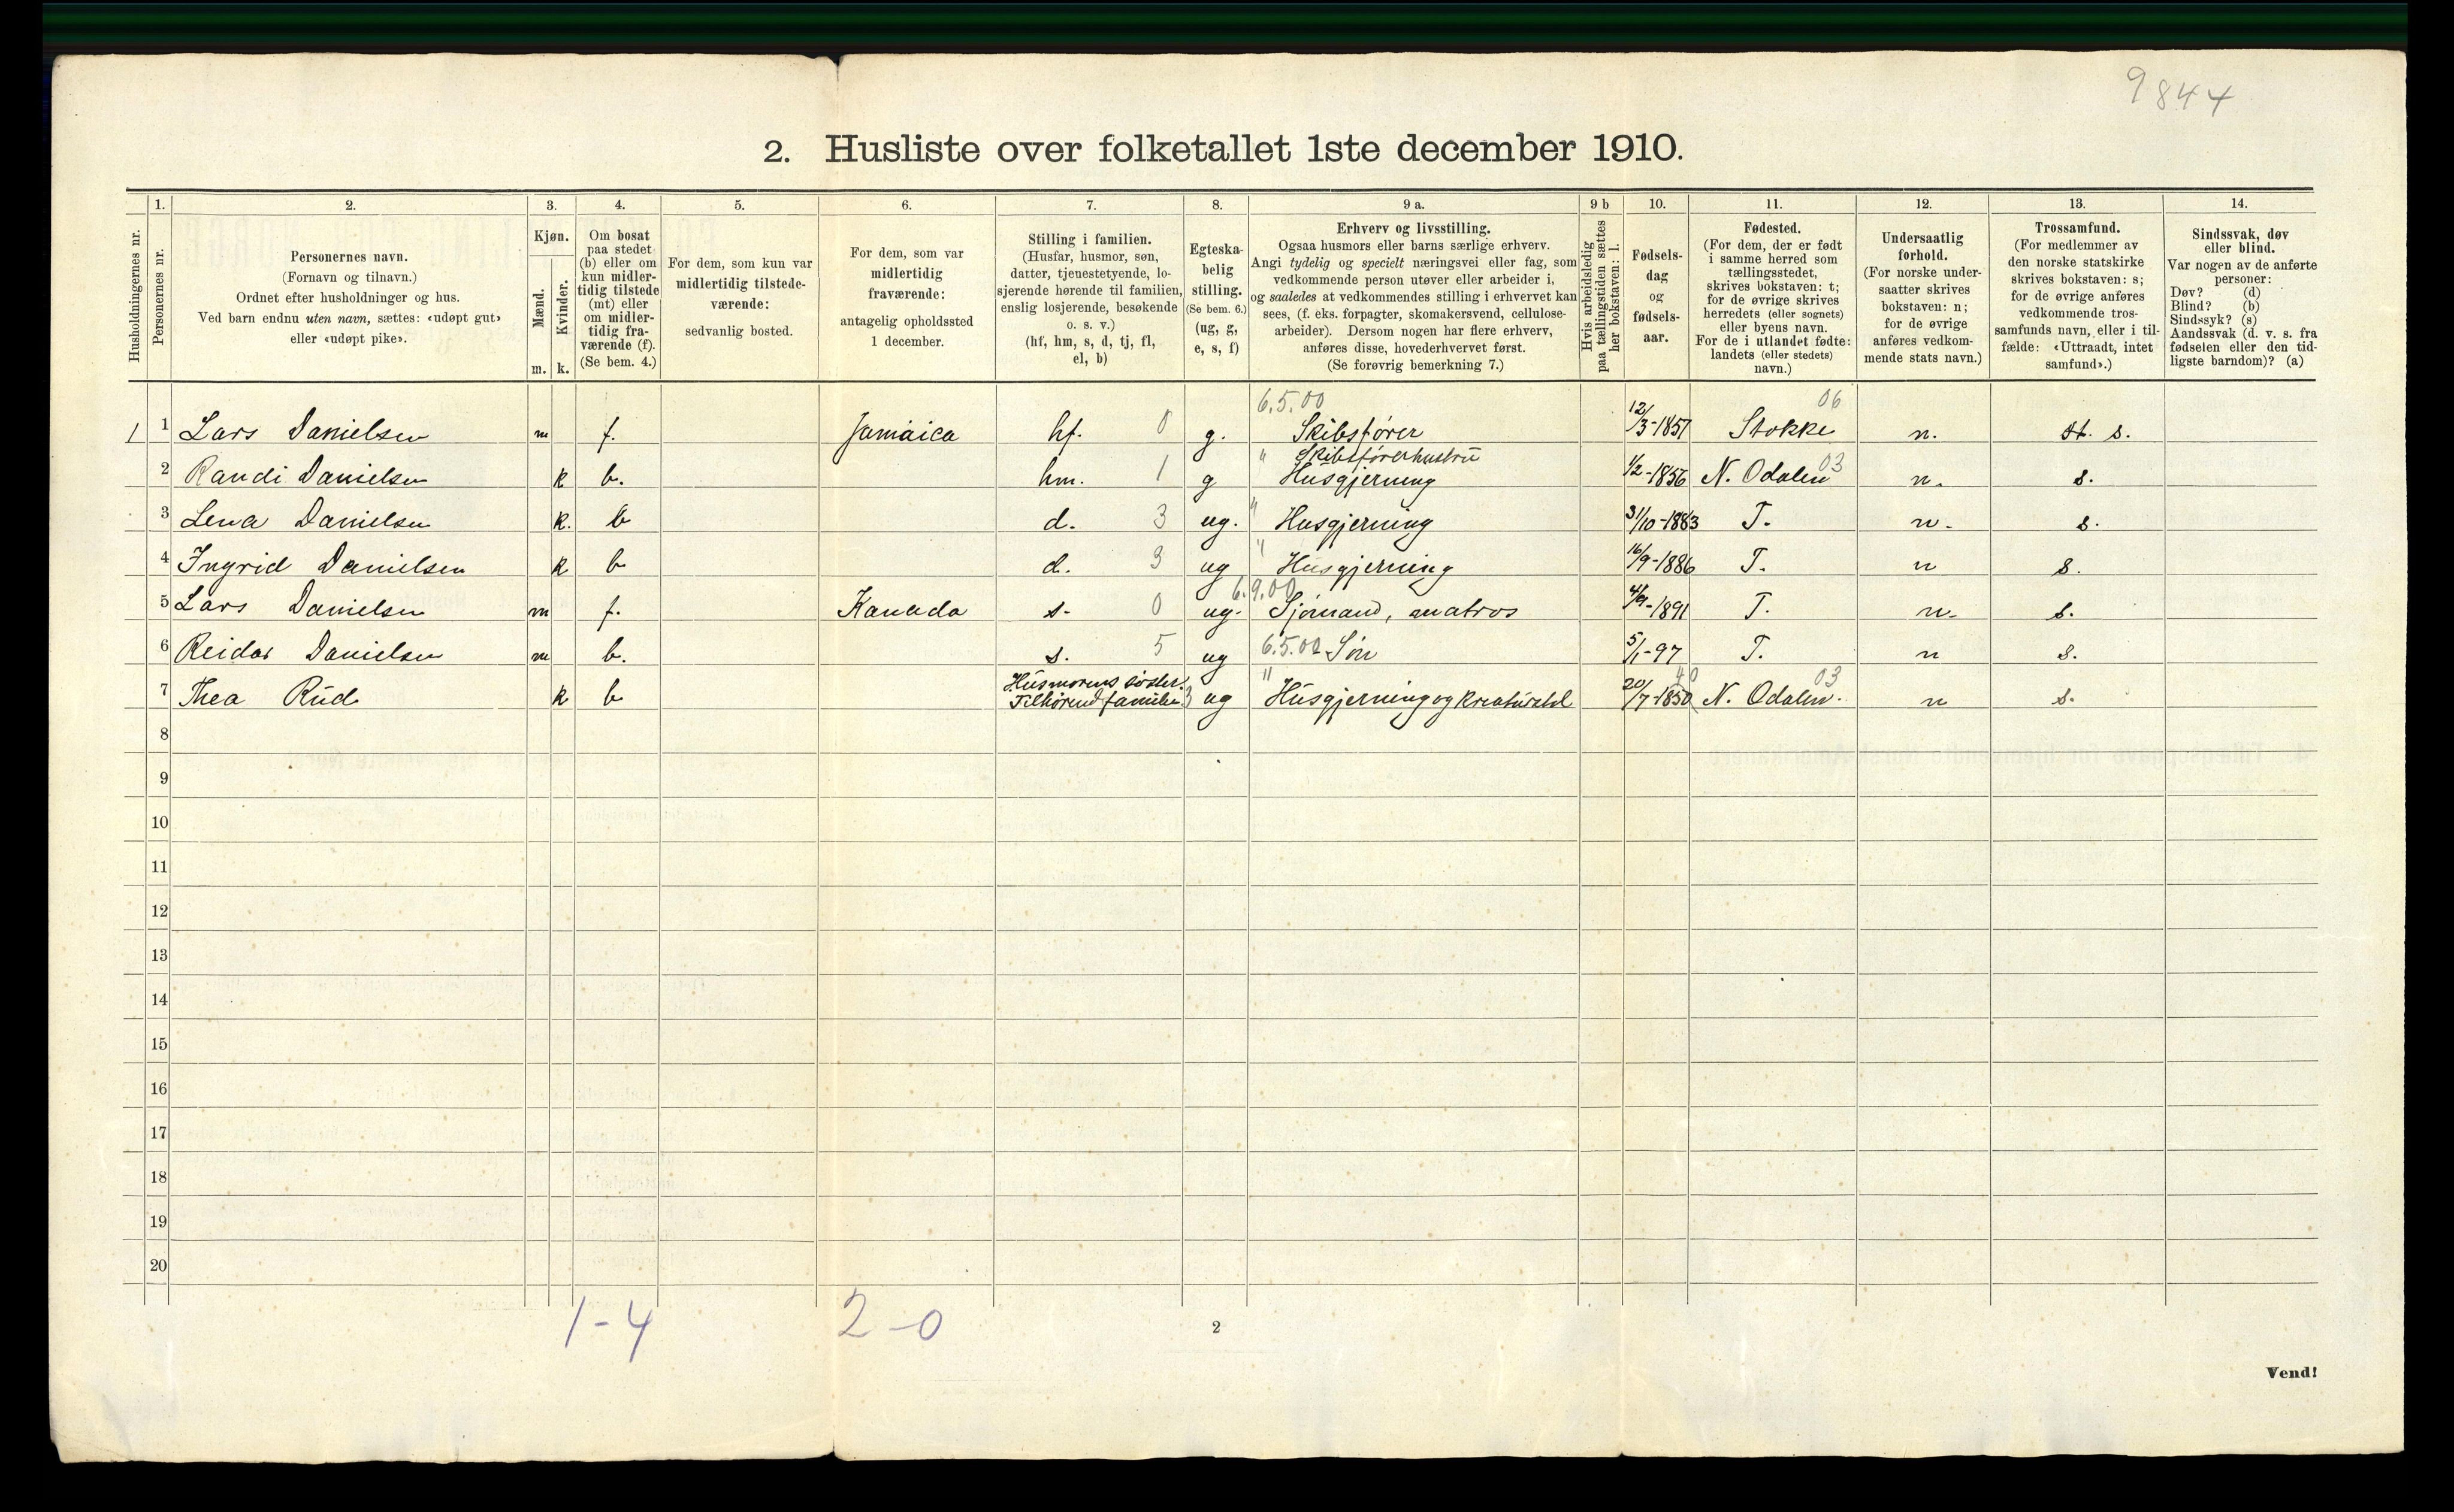 9844
2. Husliste over folketallet 1ste december 1910.
1. 2. 3. 4. 5. 6. 7. 8. 9 a. 9 b 10. 11. 12. 13. 14.
Husholdningernes nr.
Personernes nr.
Personernes navn.
(Fornavn og tilnavn.)
Ordnet efter husholdninger og hus.
Ved barn endnu uten navn, sættes: «udøpt gut»
eller «udøpt pike».
Kjøn.
Mænd.
Kvinder.
m. k.
Om bosat
paa stedet
(b) eller om
kun midler-
tidig tilstede
(mt) eller
om midler-
tidig fra-
værende (f).
(Se bem. 4.)
For dem, som kun var
midlertidig tilstede-
værende:
sedvanlig bosted.
For dem, som var
midlertidig
fraværende:
antagelig opholdssted
1 december.
Stilling i familien.
(Husfar, husmor, søn,
datter, tjenestetyende, lo-
sjerende hørende til familien,
enslig losjerende, besøkende
o. s. v.)
(hf, hm, s, d, tj, fl,
el, b)
Egteska-
belig
stilling.
(Se bem. 6.)
(ug, g,
e, s, f)
Erhverv og livsstilling.
Ogsaa husmors eller barns særlige erhverv.
Angi tydelig og specielt næringsvei eller fag, som
vedkommende person utøver eller arbeider i,
og saaledes at vedkommendes stilling i erhvervet kan
sees, (f. eks. forpagter, skomakersvend, cellulose-
arbeider). Dersom nogen har flere erhverv,
anføres disse, hovederhvervet først.
(Se forøvrig bemerkning 7.)
Hvis arbeidsledig
paa tællingstiden sættes
her bokstaven: l.
Fødsels-
dag
og
fødsels-
aar.
Fødested.
(For dem, der er født
i samme herred som
tællingsstedet,
skrives bokstaven: t;
for de øvrige skrives
herredets (eller sognets)
eller byens navn.
For de i utlandet fødte:
landets (eller stedets)
navn.)
Undersaatlig
forhold.
(For norske under-
saatter skrives
bokstaven: n;
for de øvrige
anføres vedkom-
mende stats navn.)
Trossamfund.
(For medlemmer av
den norske statskirke
skrives bokstaven: s;
for de øvrige anføres
vedkommende tros-
samfunds navn, eller i til-
fælde: «Uttraadt, intet
samfund».)
Sindssvak, døv
eller blind.
Var nogen av de anførte
personer:
Døv? (d)
Blind? (b)
Sindssyk? (s)
Aandssvak (d. v. s. fra
fødselen eller den tid-
ligste barndom)? (a)
6.5.00 06
1 1 Lars Danielsen m f. Jamaica hf. 0 g. Skibsfører 12/3-1851 Stokke n. st. s.
" Skibsførerhustru 03
2 Randi Danielsen k b. hm. 1 g Husgjerning 1/2-1856 N. Odalen n. s.
3 Lena Danielsen k. b d. 3 ug. " Husgjerning 31/10-1883 T. n. s.
4 Ingrid Danielsen k b d. 3 ug " Husgjerning 16/9-1886 T. n s.
6.9.00
5 Lars Danielsen m f. Kanada s. 0 ug. Sjømand, matros 4/9-1891 T. n. s.
6 Reidar Danielsen m b. s. 5 ug 6.5.00 Søn 5/1-97 T. n s.
Husmorens søster. " 40 03
7 Thea Rud k b Tilhørend familie 3 ug Husgjerning og kreaturstel 20/7-1850 N. Odalen. n s.
8
9
10
11
12
13
14
15
16
17
18
19
20
1-4 2-0
2
Vend!